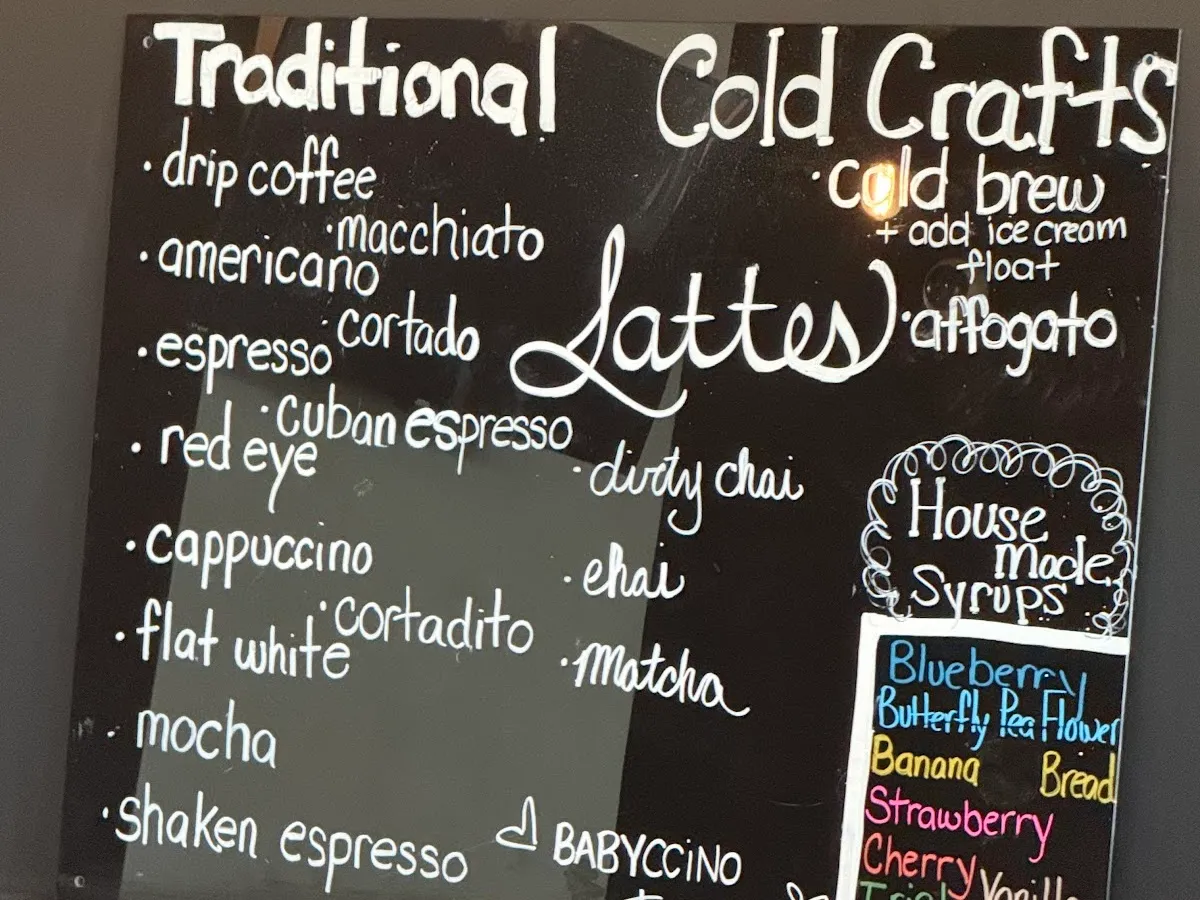 Traditional
· drip coffee
· macchiato
· americano
· cortado
· espresso
· cuban espresso
· red eye
· cappuccino
· cortadito
· flat white
· mocha
· shaken espresso
Lattes
· dirty chai
· chai
· Matcha
BABYCCiNO
Cold Crafts
· cold brew
+ add ice cream
float
· affogato
House
Made
Syrups
Blueberry
Butterfly Pea Flower
Banana Bread
Strawberry
Cherry Vanilla